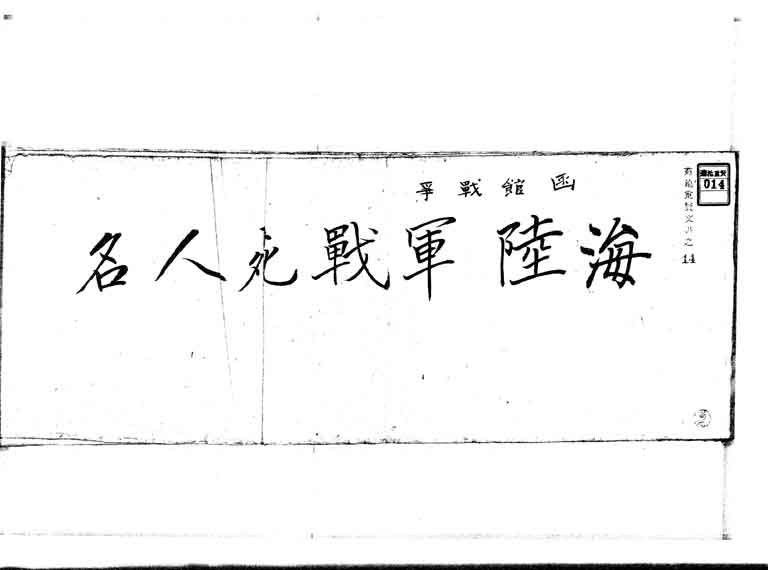 函館戰爭
海陸軍戰死人名
014
14